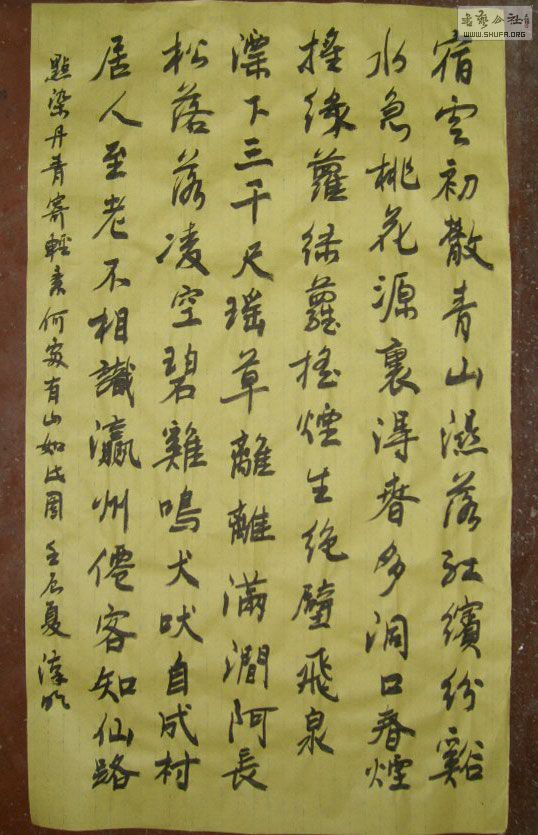 宿雲初散青山濕落紅繽紛谿
水急桃花源裏得春多洞口春煙
搖綠蘿綠蘿搖煙生絶壁飛泉
漂下三千尺瑶草離離滿澗阿長
松落落凌空碧雞鳴犬吠自成村
居人至老不相識瀛州僊客知仙路
點染丹青寄輕素何處有山如此圖 壬辰夏
書藝公社
WWW.SHUFA.ORG